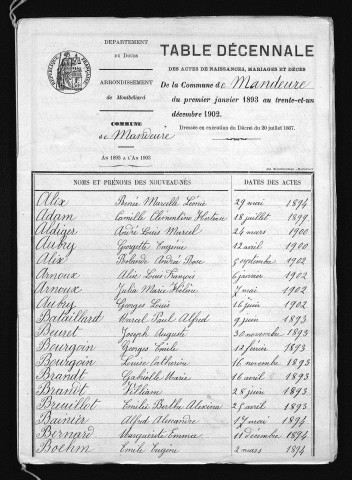 DEPARTEMENT
DU DOUBS
ARRONDISSEMENT
de Montbéliard
COMMUNE
de Mandeure
AN 1893 A L'AN 1903
TABLE DÉCENNALE
DES ACTES DE NAISSANCES, MARIAGES ET DÉCÈS
De la Commune de Mandeure
du premier janvier 1893 au trente-et-un
décembre 1902.
Dressée en exécution du Décret du 20 juillet 1807.
NOMS ET PRÉNOMS DES NOUVEAU-NÉS DATES DES ACTES
Alix Marcelle Léonie 29 mai 1894
Adam Camille Clémentine 18 juillet 1899
Aldiger André Louis Marcel 24 mars 1900
Aubry Georgette Eugénie 12 avril 1900
Alix Rolande Andrée Rose 9 septembre 1902
Arnoux Alix Louis François 6 janvier 1902
Arnoux Julia Marie Hélène mai 1902
Aubry Georges Louis 16 juin 1902
Bataillard Marcel Paul Alfred 9 juin 1893
Beuret Joseph Auguste 30 novembre 1893
Bourgoin Georges Emile 12 février 1893
Bourgoin Louise Catherine 16 novembre 1893
Brandt Gabrielle Marie 16 avril 1893
Brandt William 28 juin 1893
Breuillot Emilie Bertha Alexina 25 avril 1893
Bainier Alfred Alexandre 17 mai 1894
Bernard Marguerite Emma 11 décembre 1894
Boehm Emile Eugène 2 mars 1894